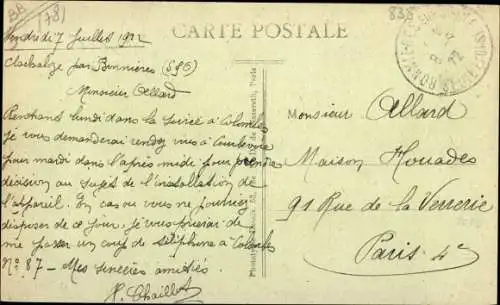 BB (78)
838
CARTE POSTALE
Vendredi 7 Juillet 1922
par Bonnières (S&O)
Monsieur Allard
Rentrant lundi dans la soirée à Colombes
je vous demanderai rendez vous à Courbevoie
pour mardi dans l'après midi pour prendre
décision au sujet de l'installation de
l'appareil. En cas ou vous ne pourriez
disposer de ce jour, je vous prierai de
me passer un coup de téléphone à Colombes
N° 87 - Mes sincères amitiés
P. Chaillot
Monsieur Allard
Maison Houades
91 Rue de la Verrerie
Paris 4e